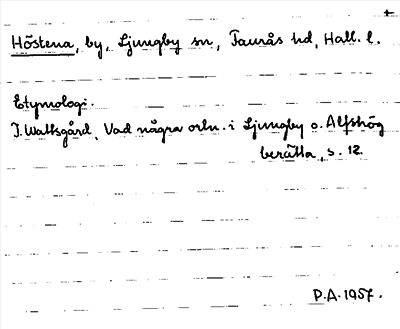 Höstena, by, Ljungby sn, Faurås hd, Hall. l.
Etymologi.
J. Wattsgård, Vad några ortn. i Ljungby o. Alfshög
berätta, s. 12.
P.A. 1957.